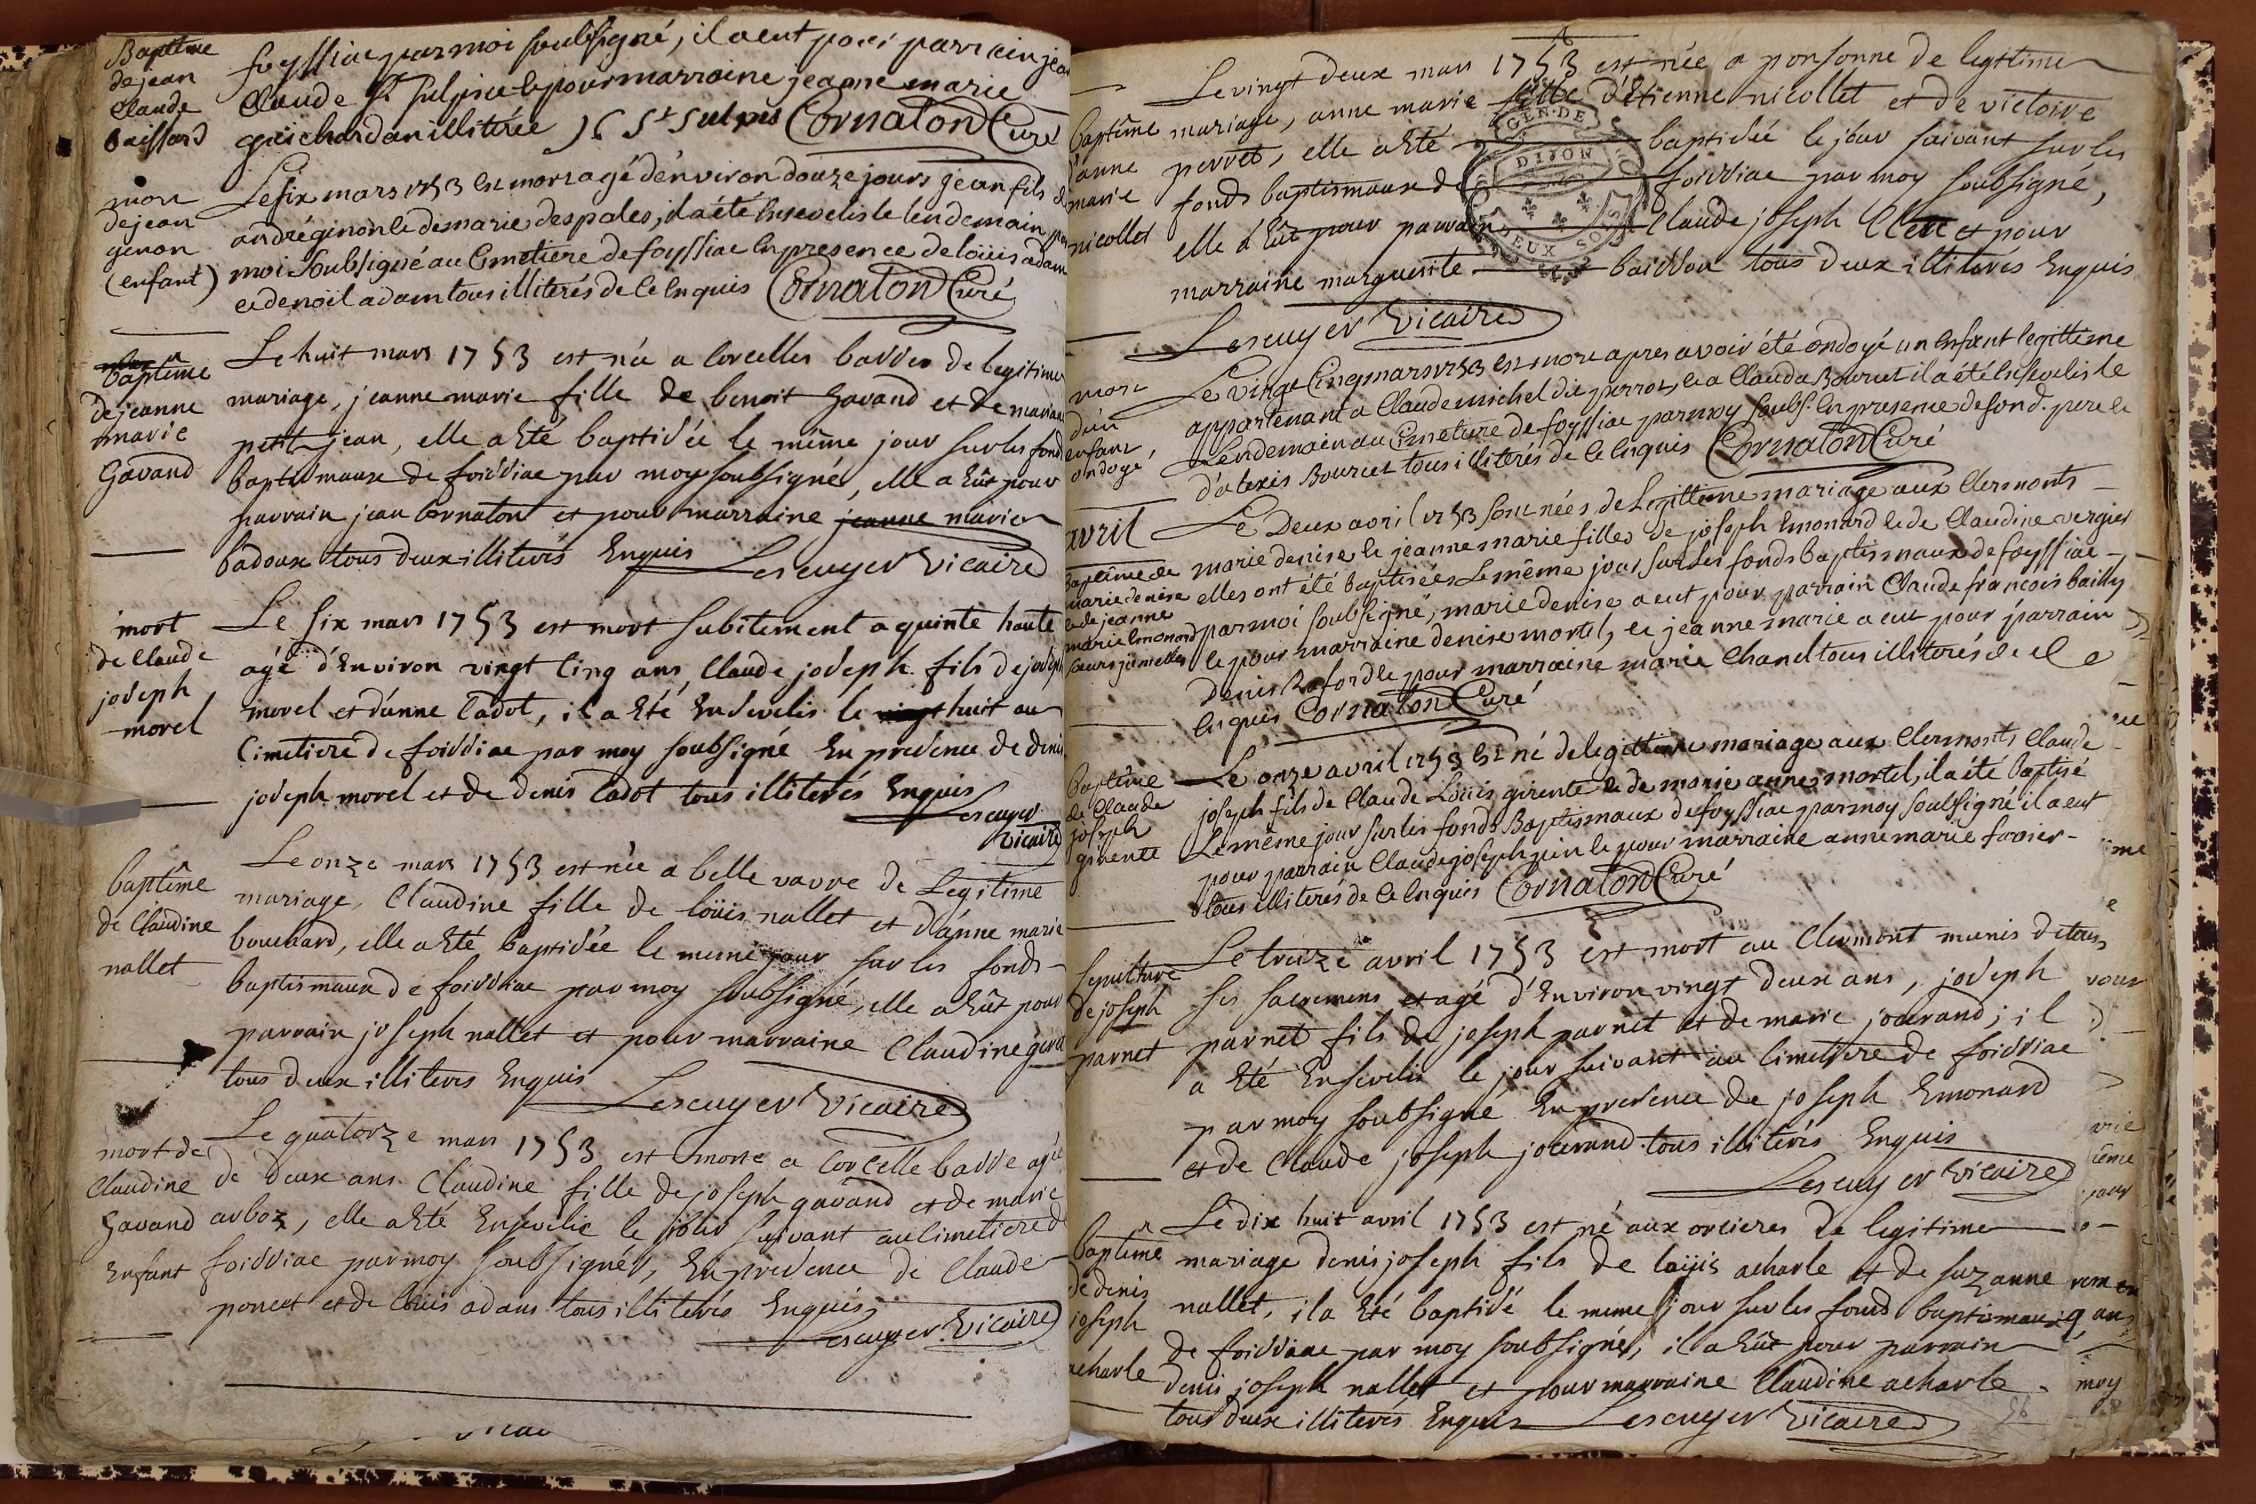 Baptême
de jean
Claude
baissard
foyssiac par moi soubsigné, il a eut pour parrain jean
Claude St Sulpice le pour marraine jeanne marie
guichardan illiterée JC St Sulpis Cornaton Curé
mort
de jean
ginon
(enfant)
Le six mars 1753 est mort agé d'environ douze jours jean fils
andré ginon le de marie despales, il a été Enseveli le lendemain par
moi soubsigné au Cimetiere de foyssiac En presence de loüis adam
et de noïl adam tous illiterés de ce Enquis Cornaton Curé
baptême
de jeanne
marie
Gavand
Le huit mars 1753 est née a Corcelles basses de legitime
mariage, jeanne marie fille de benoit Gavand et de mariane
petit jean, elle a Eté baptisée le même jour sur les fond
baptismaux de foissiac par moy soubsigné, elle a Eût pour
parrain jean Cornaton et pour marraine jeanne marie
badoux tous deux illiterés Enquis Lescuyer Vicaire
mort
de Claude
joseph
morel
Le six mars 1753 est mort subitement a quinte haute
agé d'Environ vingt Cinq ans, Claude joseph fils de joseph
morel et d'anne Cadot, il a Eté Ensevelis le vingt huit au
Cimetiere de foissiac par moy soubsigné En presence de denis
joseph morel et de denis Cadot tous illiterés Enquis
Lescuyer
Vicaire
baptême
de Claudine
nallet
Le onze mars 1753 est née a belle vavre de Legitime
mariage, Claudine fille de loüis nallet et d'anne marie
bouchard, elle a Eté baptisée le meme jour sur les fonds
baptismaux de foissiac par moy soubsigné, elle a Eût pour
parrain joseph nallet et pour marraine Claudine
tous deux illiteres Enquis Lescuyer Vicaire
mort de
Claudine
Gavand
Enfant
Le quatorze mars 1753 est morte a Corcelle basse agée
de deux ans Claudine fille de joseph gavand et de marie
arboz, elle a Eté Ensevelie le jour suivant au Cimetiere de
foissiac par moy soubsigné, En presence de Claude
poncet et de loüis adam tous illiterés Enquis
Lescuyer Vicaire
baptême
d'anne
marie
nicollet
Le vingt deux mars 1753 est née a ponsonne de legitime
mariage, anne marie fille d'Etienne nicollet et de victoire
perret, elle a Eté baptisée le jour suivant sur les
fonds baptismaux de foissiac par moy soubsigné,
elle a Eût pour parrain Claude joseph et pour
marraine marguerite baisson tous deux illiterés Enquis
Lescuyer Vicaire
GEN. DE
DIJON
DEUX SOLS
mort
d'un
enfant
ondoyé
Le vingt Cinq mars 1753 est mort apres avoir été ondoyé un Enfant legittime
appartenant a Claude michel dit perrot, le a Claudа Bourcet il a été Enseveli le
Lendemain au Cimetiere de foyssiac par moy soubs. En presence de son d. pere le
d'alexis Bourcet tous illiterés de ce Enquis Cornaton Curé
avril
Baptême de
marie denise
le de jeanne
marie Emonard
soeurs jumelles
Le Deux avril 1753 sont nées de Legittime mariage aux Clermonts
marie denise le jeanne marie filles de joseph Emonard le de Claudine vergier
elles ont été baptisées Le même jour sur les fonds baptismaux de foyssiac
par moi soubsigné, marie denise a eut pour parrain Claude francois bailly
le pour marraine denise mortel, le jeanne marie a eut pour parrain
denis Raford le pour marraine marie Chanel tous illiterés de ce
Enquis Cornaton Curé
Baptême
de Claude
joseph
girente
Le onze avril 1753 Est né de legittime mariage aux Clermonts Claude
joseph fils de Claude Loüis girente le de marie anne mortel, il a été baptisé
Le même jour sur les fonds Baptismaux de foyssiac par moy soubsigné il a eut
pour parrain Claude joseph le pour marraine anne marie favier
tous illiterés de ce Enquis Cornaton Curé
sepulture
de joseph
parnet
Le treize avril 1753 est mort au Clermont munis de tous
ses sacremens et agé d'Environ vingt deux ans, joseph
parnet fils de joseph parnet et de marie jocerand; il
a Eté Ensevelis le jour suivant au Cimetiere de foissiac
par moy soubsigné En presence de joseph Emonard
et de Claude joseph jocerand tous illiterés Enquis
Lescuyer Vicaire
baptême
de denis
joseph
acharle
Le dix huit avril 1753 est né aux orcieres de legitime
mariage denis joseph fils de loüis acharle et de suzanne
nallet, il a Eté baptisé le meme jour sur les fonds baptismaux
de foissiac par moy soubsigné, il a Eût pour parrain
denis joseph nallet et pour marraine Claudine acharle
tous deux illiterés Enquis Lescuyer Vicaire
moy